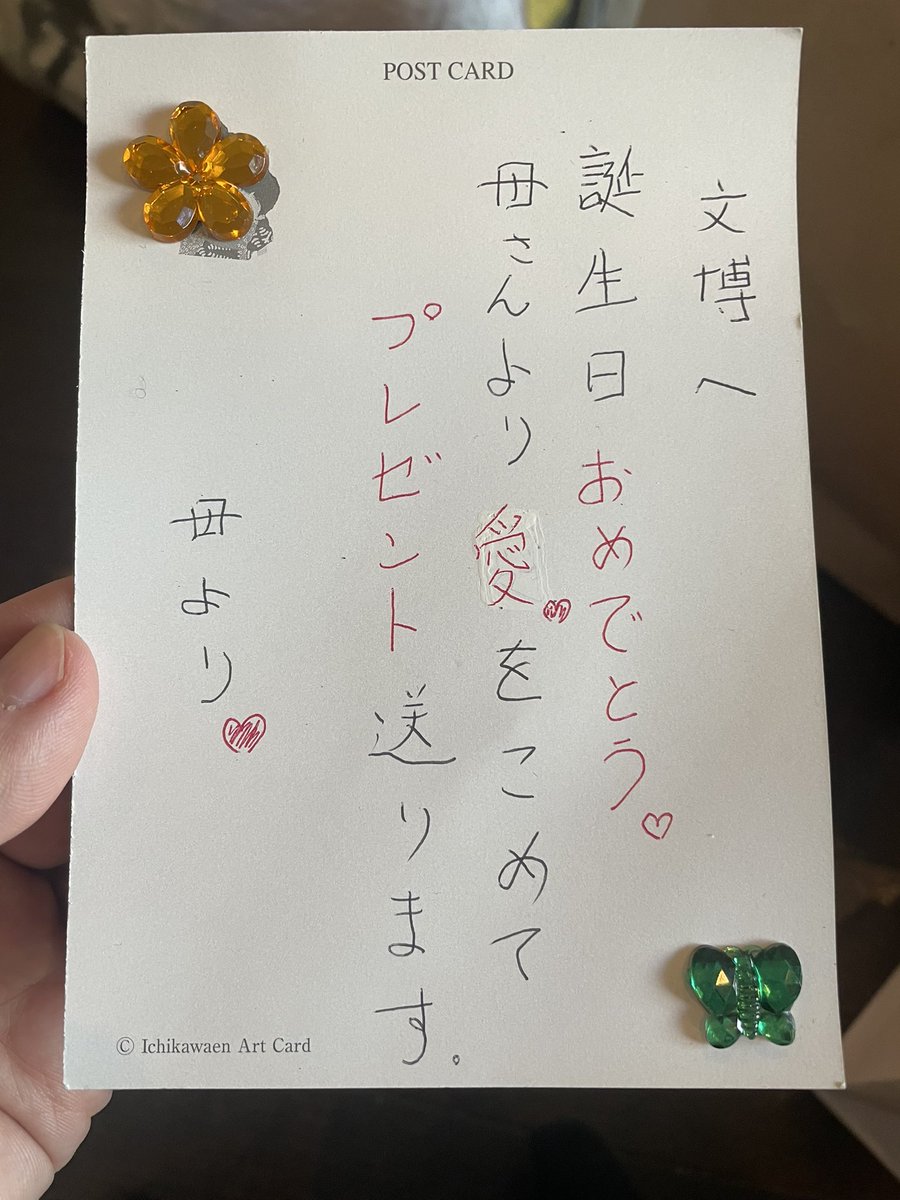 POST CARD
文博へ
誕生日おめでとう
母さんより愛をこめて
プレゼント送ります。
母より
© Ichikawaen Art Card